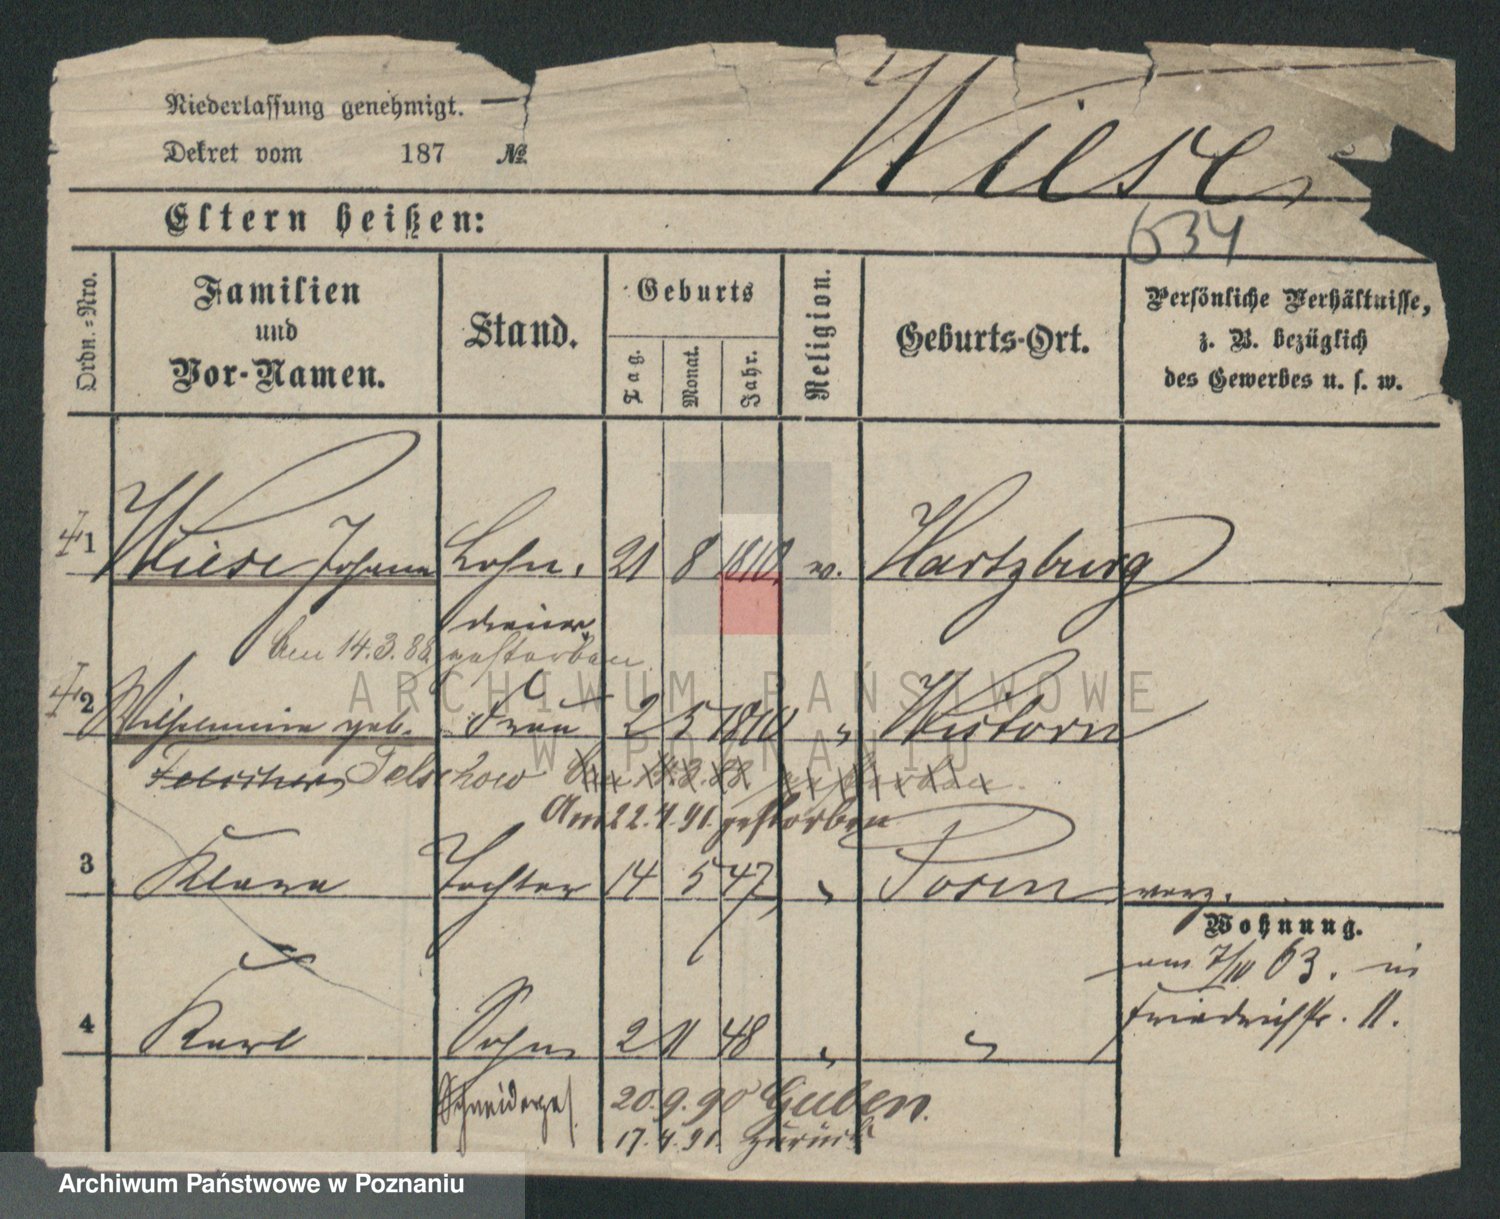 Niederlassung genehmigt. —
Dekret vom 187 №
Wiese
634
Eltern heißen:
Ordn.=Nro.
Familien und Vor-Namen.
Stand.
Geburts
Tag.
Monat.
Jahr.
Religion.
Geburts-Ort.
Persönliche Verhältnisse,
z. B. bezüglich
des Gewerbes u. s. w.
1 Wiese Johann Lohn- 21 8 1810 ev. Hartzburg
diener
Am 14.3.88 gestorben
2 Wilhelmine geb. Frau 2 5 1810 " Wistorn
Telschow Am 14.3.88 gestorben.
Am 22.4.91. gestorben
3 Klara Tochter 14 5 47 " Posen verz.
Wohnung.
am 7/IV 63. in
Friedrichstr. 11.
4 Karl Sohn 2 11 48 " "
Schneiderges. 20.9.90 Guben.
17.4.91. zurück
ARCHIWUM PAŃSTWOWE
W POZNANIU
Archiwum Państwowe w Poznaniu